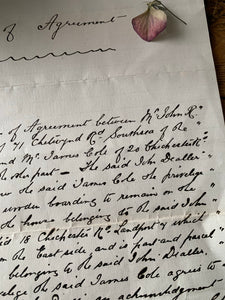 of Agreement
of Agreement between Mr John R.
of 71 Chetwynd Rd. Southsea of the
and Mr. James Cole of 20 Chichester
the other part - The said John Dealler
the said James Cole the privilege
wooden boarding to remain on the
house belonging to the said John
18 Chichester Rd. Landport & which
on the East side and is part and parcel
belonging to the said John Dealler,
privilege the said James Cole agrees to
an acknowledgment